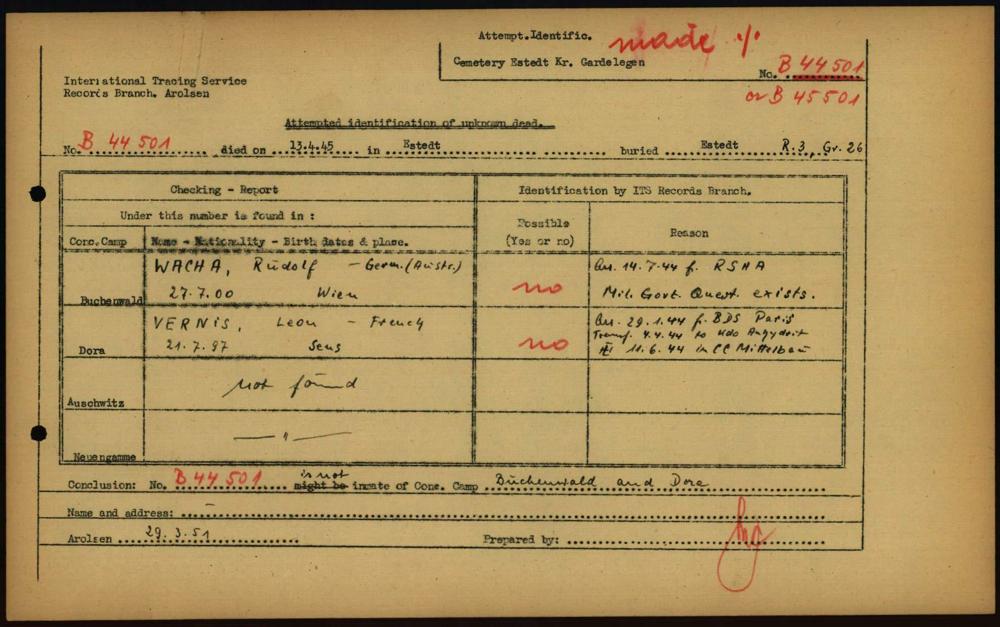 Attempt.Identific. made ./.
Cemetery Estedt Kr. Gardelegen
No. B 44 501
or B 45501
International Tracing Service
Records Branch. Arolsen
Attempted identification of unknown dead.
No. B 44 501 died on 13.4.45 in Estedt buried Estedt R.3, Gr. 26
Checking - Report
Identification by ITS Records Branch.
Under this number is found in :
Possible
(Yes or no)
Reason
Conc.Camp
Name - Nationality - Birth dates & place.
Buchenwald
WACHA, Rudolf - Germ. (Austr.)
27.7.00 Wien
no
Arr. 14.7.44 f. RSHA
Mil. Govt. Quest. exists.
Dora
VERNIS, Leon - French
21.7.97 Sens
no
Arr. 29.1.44 f. BDS Paris
Transf. 4.4.44 to Kdo Anhydrit
11.6.44 in CC Mittelbau
Auschwitz
not found
Neuengamme
— " —
Conclusion: No. B 44 501 is not might be inmate of Conc. Camp Buchenwald and Dora
Name and address: -
Arolsen 29.3.51 Prepared by: hg